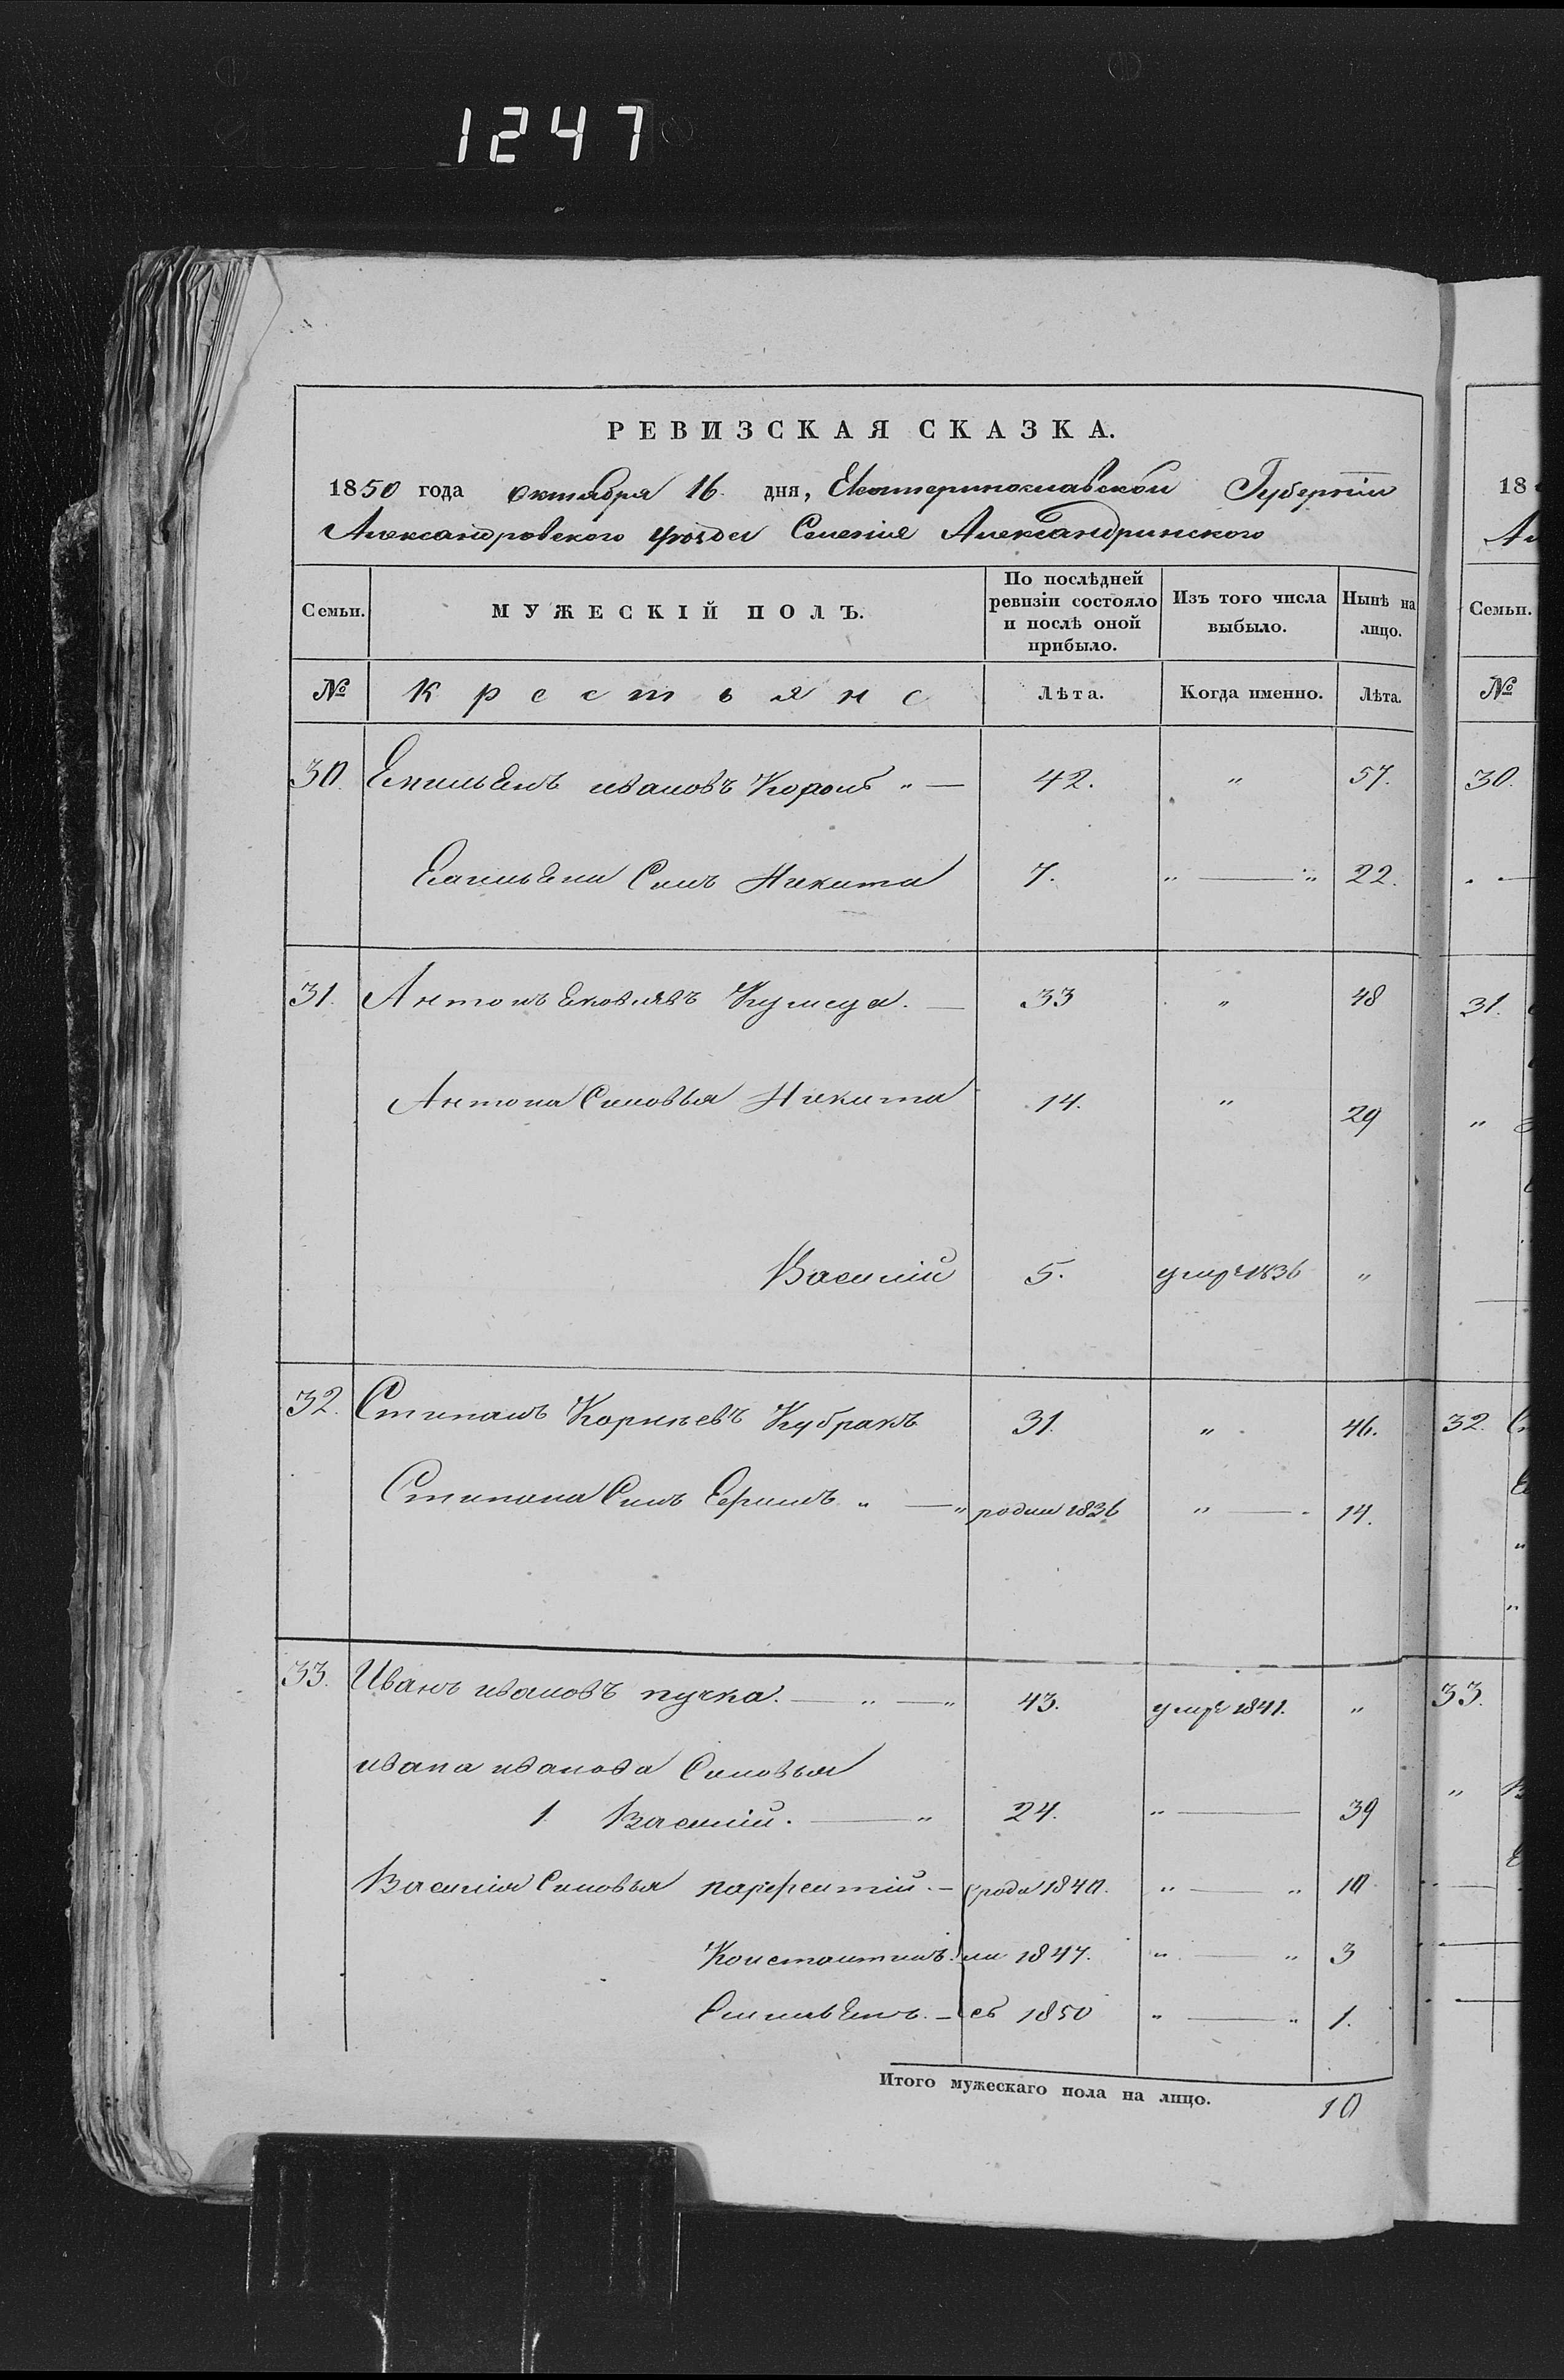 1247
РЕВИЗСКАЯ СКАЗКА.
1850 года октября 16 дня, Екатеринославской Губерніи
Александровского уѣзда Селенія Александринского
Семьи. МУЖЕСКІЙ ПОЛЪ. По послѣдней ревизіи состояло и послѣ оной прибыло. Изъ того числа выбыло. Нынѣ на лицо.
№ Крестьяне Лѣта. Когда именно. Лѣта.
30. Емильенъ ивановъ „ — 42. „ 57.
Емильена Синъ Никита 7. „ — „ 22.
31. Антонъ Ековлевъ — 33 „ 48
Антона Синовья Никита 14. „ 29
Василій 5. умре 1836 „
32. Стипанъ Корнѣевъ Кубракъ 31. „ 46.
Стипана Синъ „ — „ родил 1836 „ — 14.
33. Иванъ ивановъ пучка. — „ — „ 43. умре 1841. „
ивана иванова Синовья
1 Василій. — „ 24. „ — 39
Василія Синовья парфентій. — рода 1840. „ — „ 10
Константинъ. ли 1847. „ — „ 3
Емильенъ. — сь 1850 „ — „ 1.
Итого мужескаго пола на лицо. 10
18
Ал
Семьи.
№
30.
31.
32.
33.